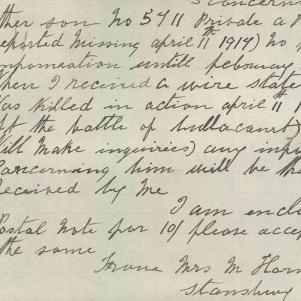 concerni
ther son No 5411 Private a P
reported missing april 11th 1917) No
infoomation untill february
when I received a wire state
was killed in action april 11th
at the battle of bullacourt)
will make inquiries) any info
concerning him will be tha
received by me
I am enclo
Postal Note for 10/ please accep
the same
From Mrs M Harr
Stansbury